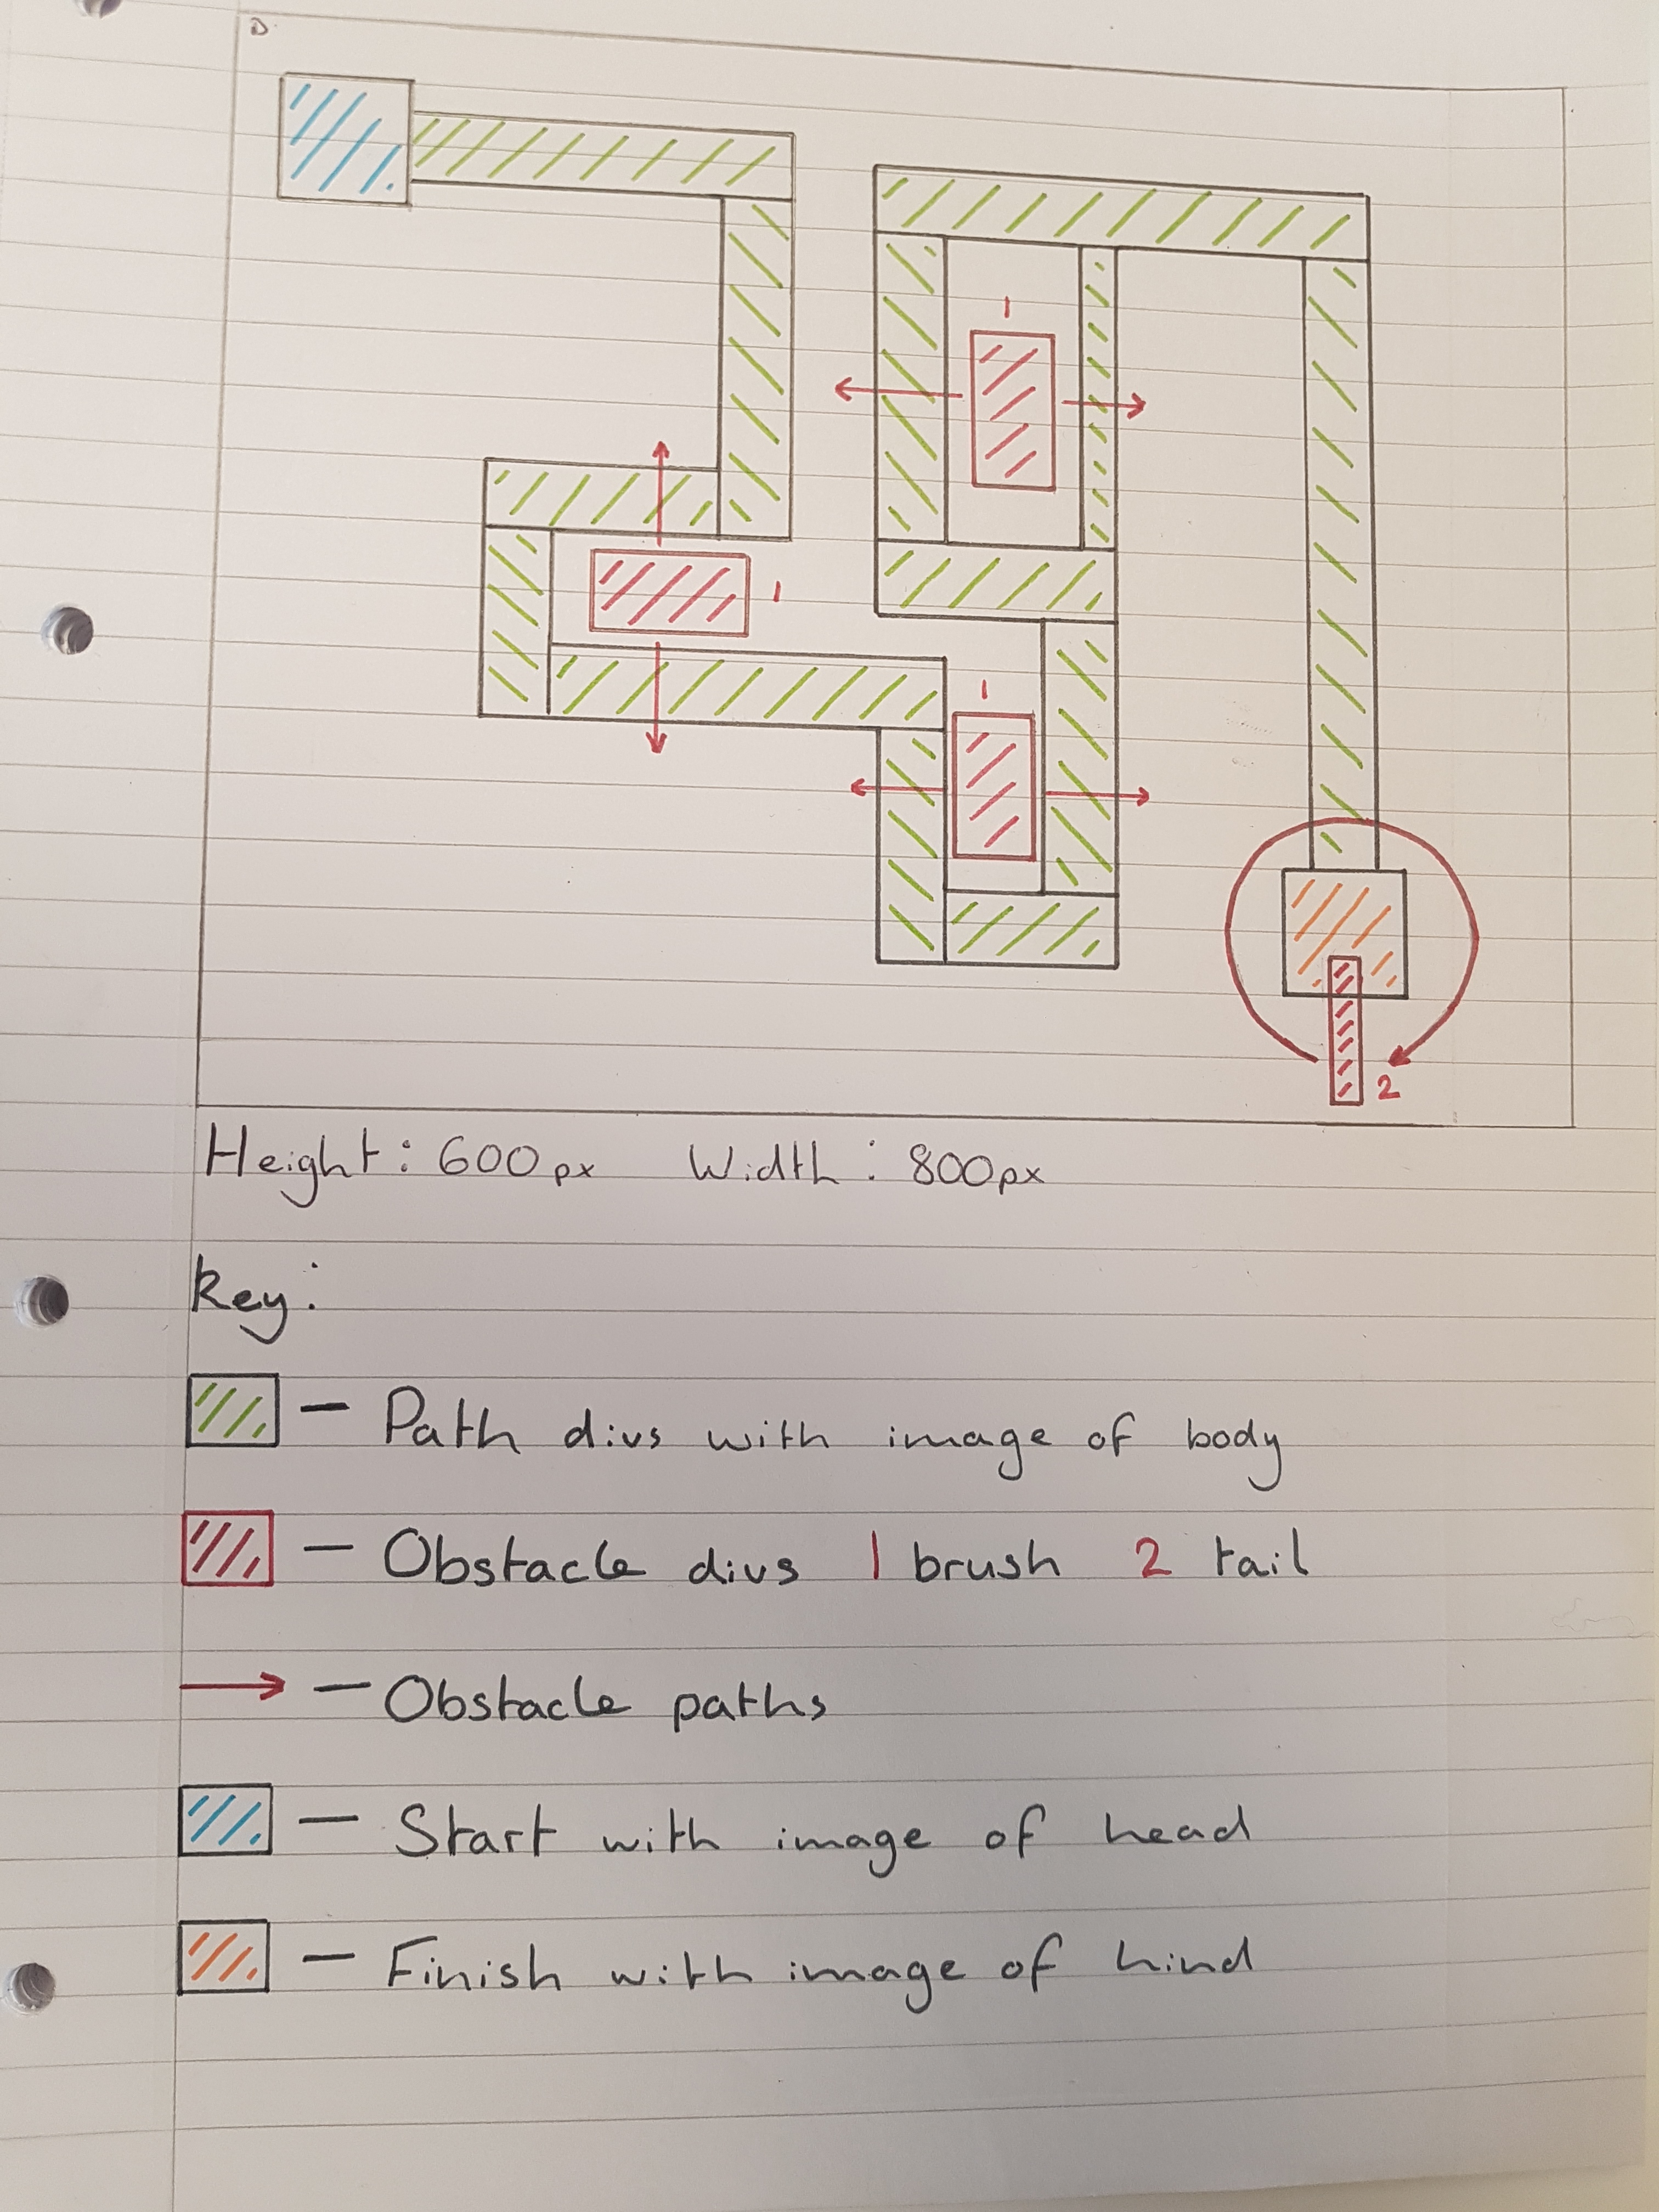 D
1
1
1
2
Height: 600px Width: 800px
Key:
— Path divs with image of body
— Obstacle divs 1 brush 2 tail
— Obstacle paths
— Start with image of head
— Finish with image of hind